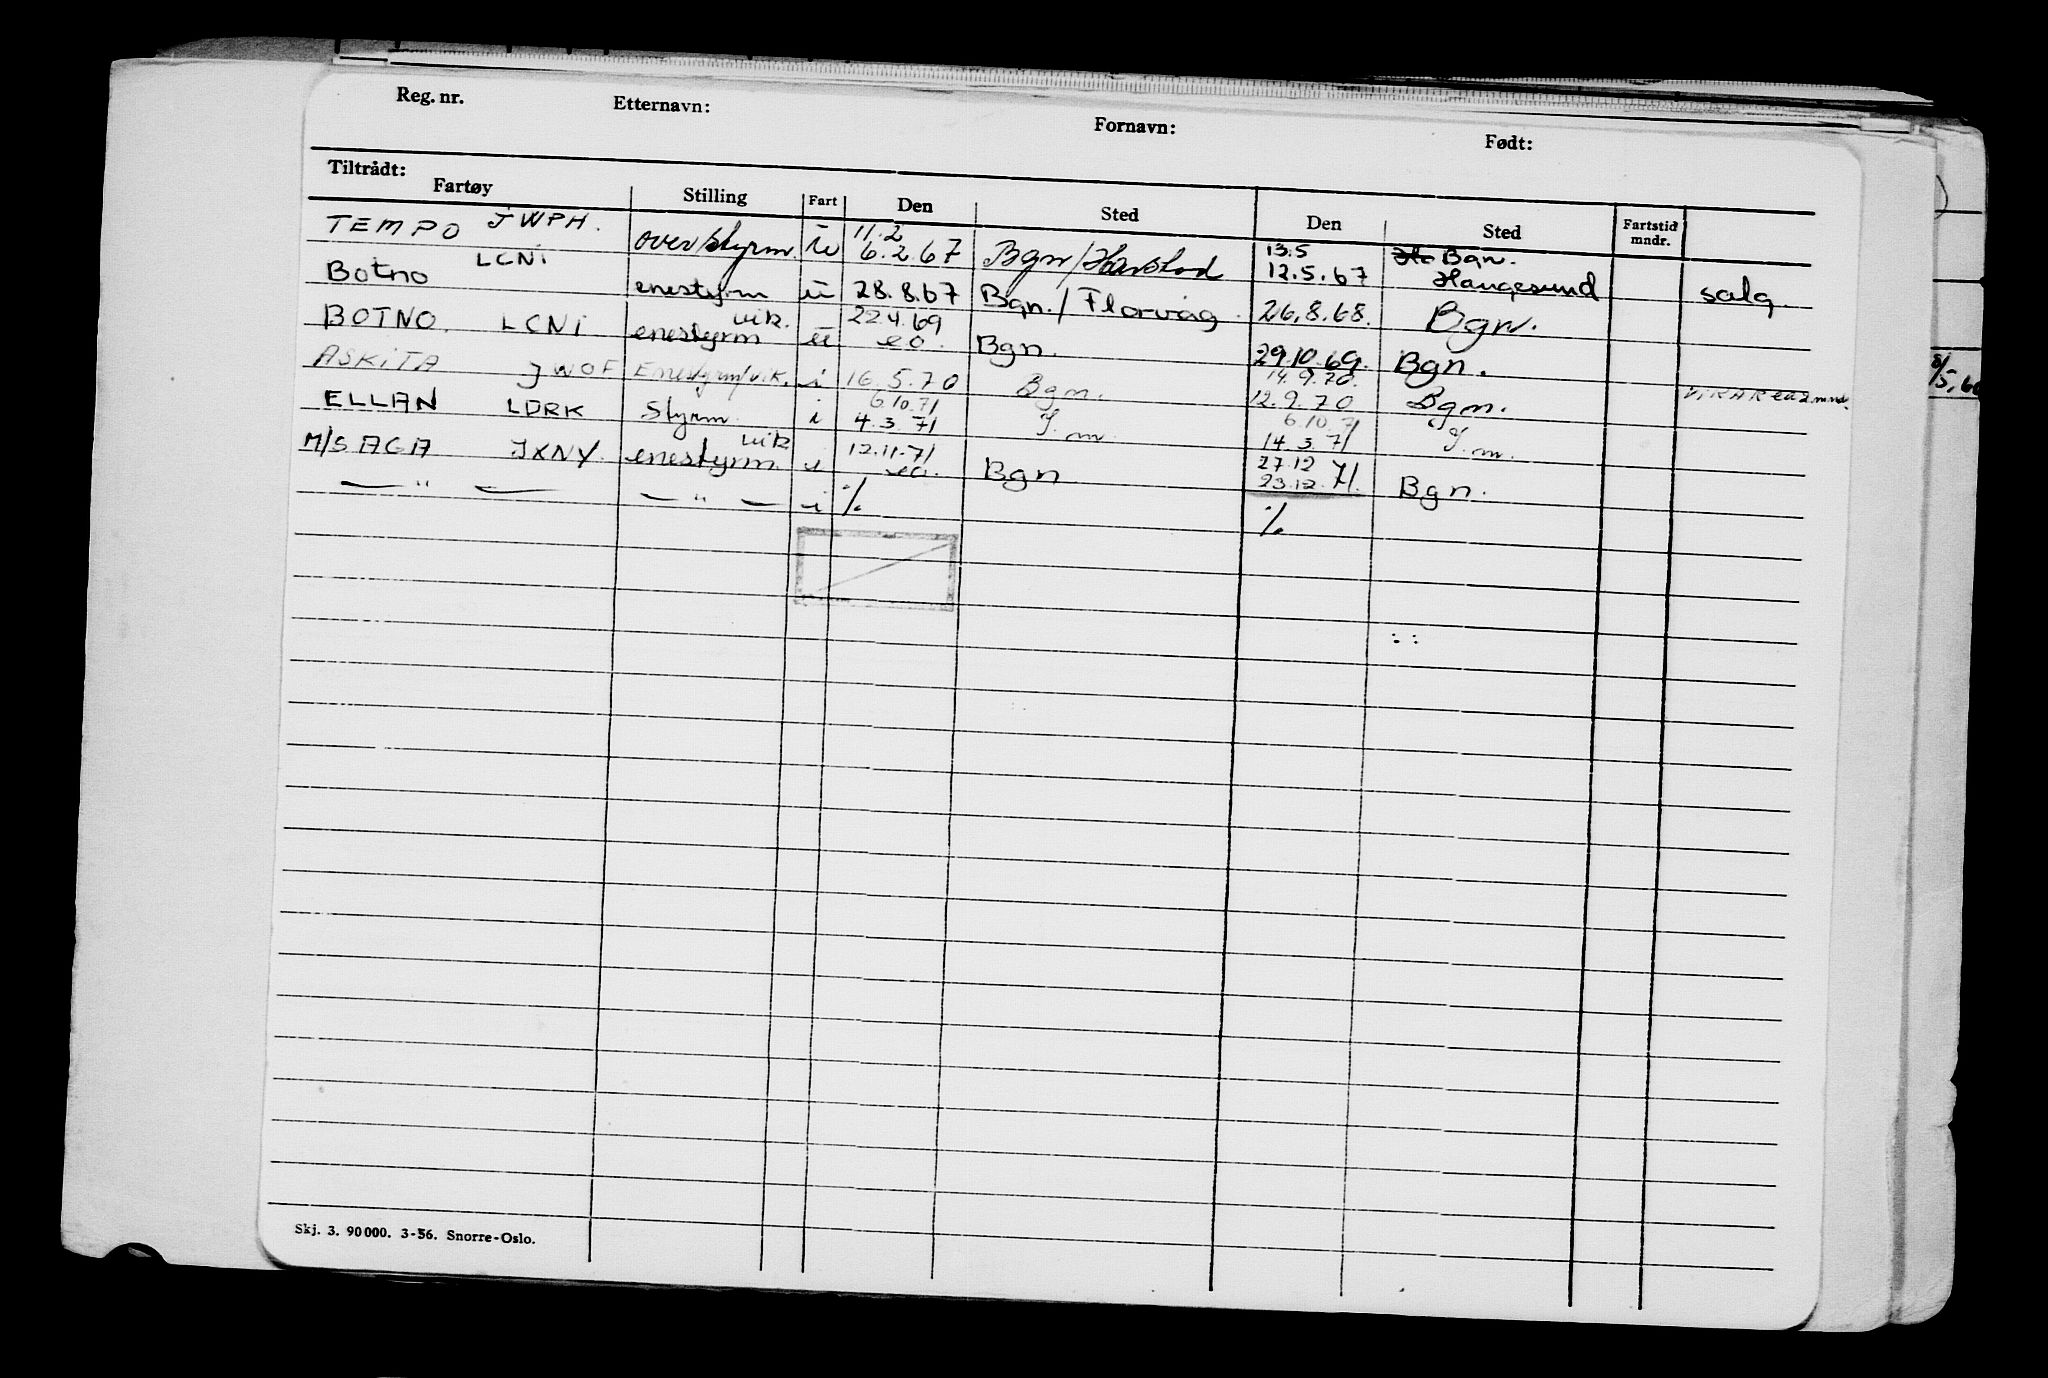 Reg. nr. Etternavn: Fornavn: Født:
Tiltrådt:
Fartøy Stilling Fart Den Sted Den Sted Fartstid mndr.
TEMPO JWPH. overstyrm ü 11.2 6.2.67 Bgn/Harstad 13.5 12.5.67 Bgn. Haugesund salg.
Botno LCNi enestyrm ü 28.8.67 Bgn./Florvåg. 26.8.68. Bgn.
BOTNO. LCNi enestyrm vik. ü 22.4.69 eo. Bgn. 29.10.69. Bgn.
ASKiTA JWOF Enestyrm/vik. i 16.5.70 Bgn. 14.9.70. 12.9.70 Bgn. VIKAR ca 2 mnd.
ELLAN LDRK Styrm. i 6.10.71 4.3.71 I.m. 6.10.71 14.3.71 I.m.
M/S AGA JXNY. enestyrm vik i 12.11.71 eo. Bgn 27.12 23.12.71. Bgn.
— " — — " — i ./. ./.
8/5.60
Skj. 3. 90000. 3-56. Snorre-Oslo.